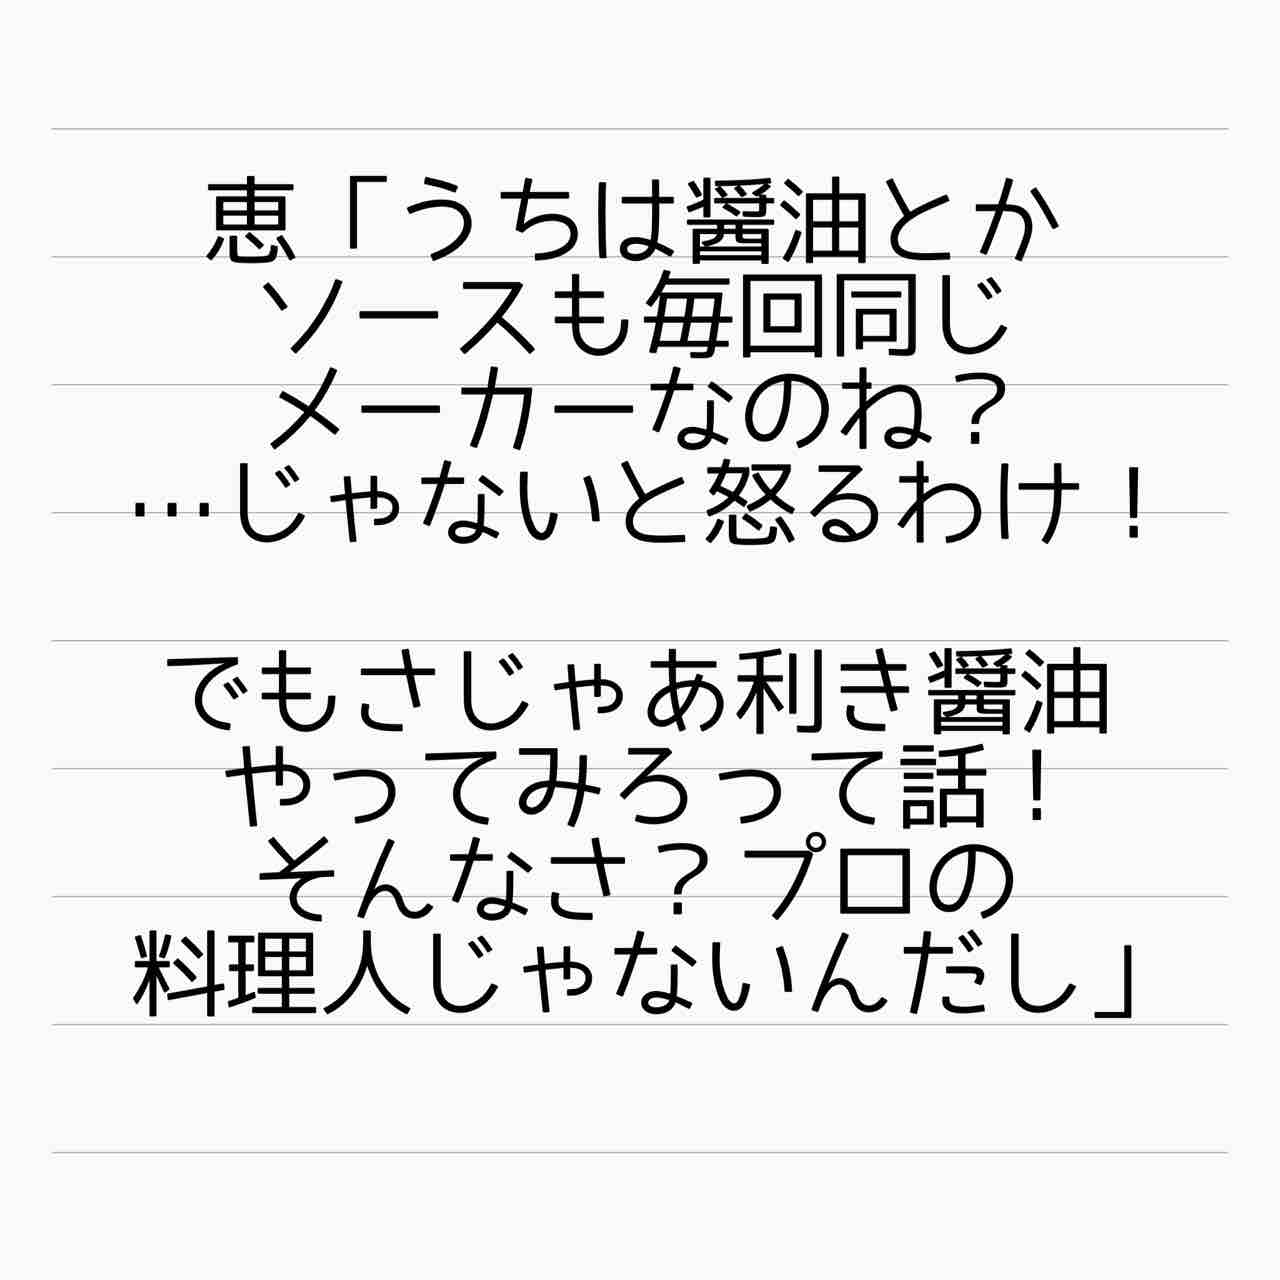 恵「うちは醤油とか
ソースも毎回同じ
メーカーなのね？
…じゃないと怒るわけ！
でもさじゃあ利き醤油
やってみろって話！
そんなさ？プロの
料理人じゃないんだし」